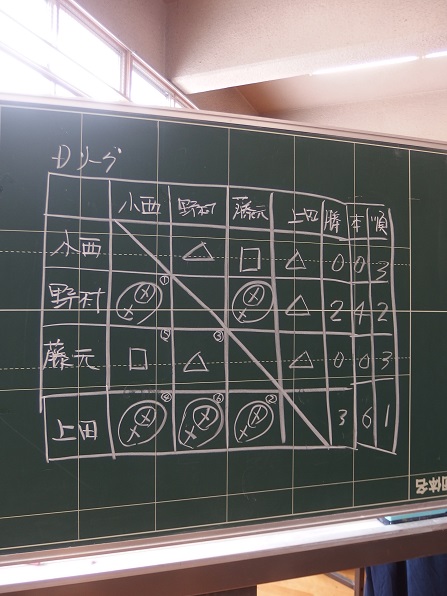 Dリーグ
小西 野村 藤元 上田 勝 本 順
小西 △ □ △ 0 0 3
① 
野村 ⓧⓧ ⓧⓧ △ 2 4 2
⑤ ③
藤元 □ △ △ 0 0 3
④ ⑥ ②
上田 ⓧⓧ ⓧⓧ ⓧⓧ 3 6 1
団体名